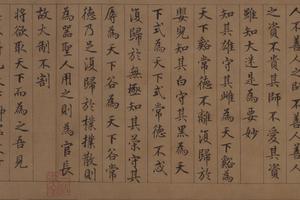 人不善人之師不善人善人
之資不貴其師不愛其資
雖知大迷是為要妙
知其雄守其雌為天下谿為
天下谿常德不離復歸於
嬰兒知其白守其黑為天
下式為天下式常德不忒
復歸於無極知其榮守其
辱為天下谷為天下谷常
德乃足復歸於樸樸散則
為器聖人用之則為官長
故大制不割
將欲取天下而為之吾見